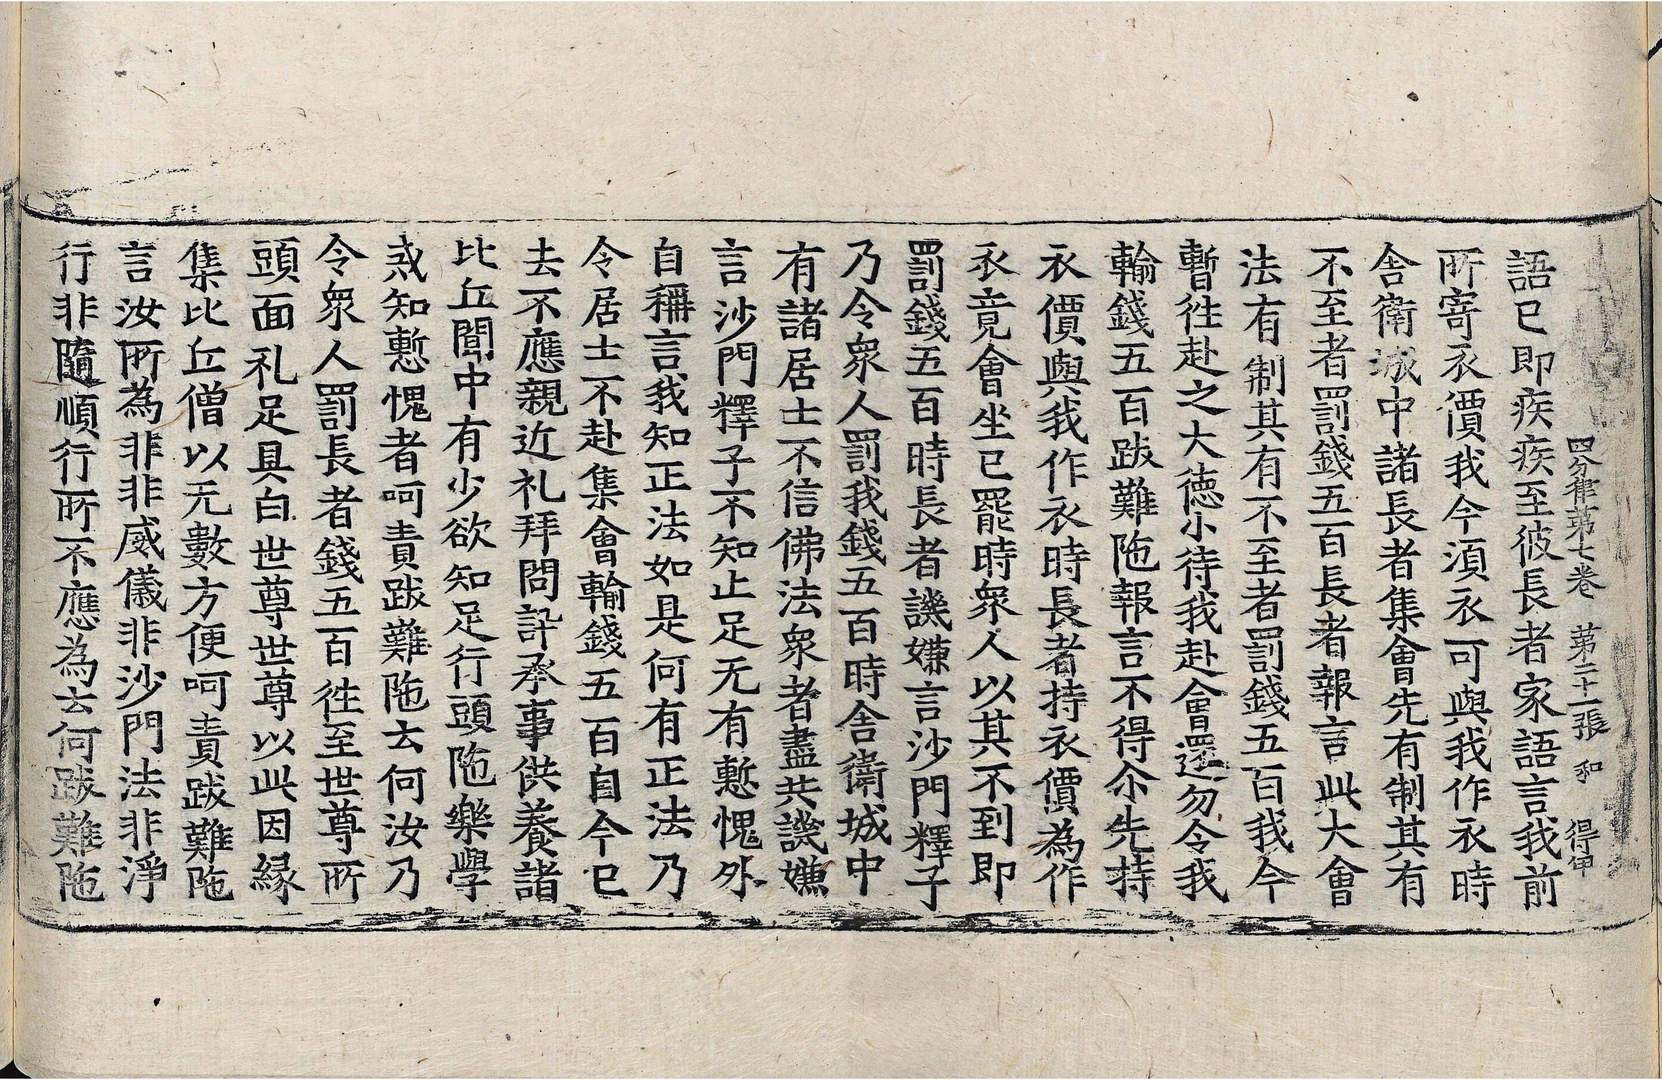 四分律第七卷　第二十一張　和　得甲
語已即疾疾至彼長者家語言我前
所寄衣價我今湏衣可與我作衣時
舎衛城中諸長者集會先有制其有
不至者罰錢五百長者報言此大會
法有制其有不至者罰錢五百我今
暫徃赴之大德小待我赴會還勿令我
輸錢五百跋難陁報言不得尒先持
衣價與我作衣時長者持衣價為作
衣竟會坐已罷時衆人以其不到即
罰錢五百時長者譏嫌言沙門釋子
乃令衆人罰我錢五百時舎衛城中
有諸居士不信佛法衆者盡共譏嫌
言沙門釋子不知止足无有慙愧外
自稱言我知正法如是何有正法乃
令居士不赴集會輸錢五百自今已
去不應親近礼拜問訊承事供養諸
比丘聞中有少欲知足行頭陁樂學
戒知慙愧者呵責跋難陁云何汝乃
令衆人罰長者錢五百徃至世尊所
頭面礼足具白世尊世尊以此因縁
集比丘僧以无數方便呵責跋難陁
言汝所為非非威儀非沙門法非淨
行非隨順行所不應為云何跋難陁